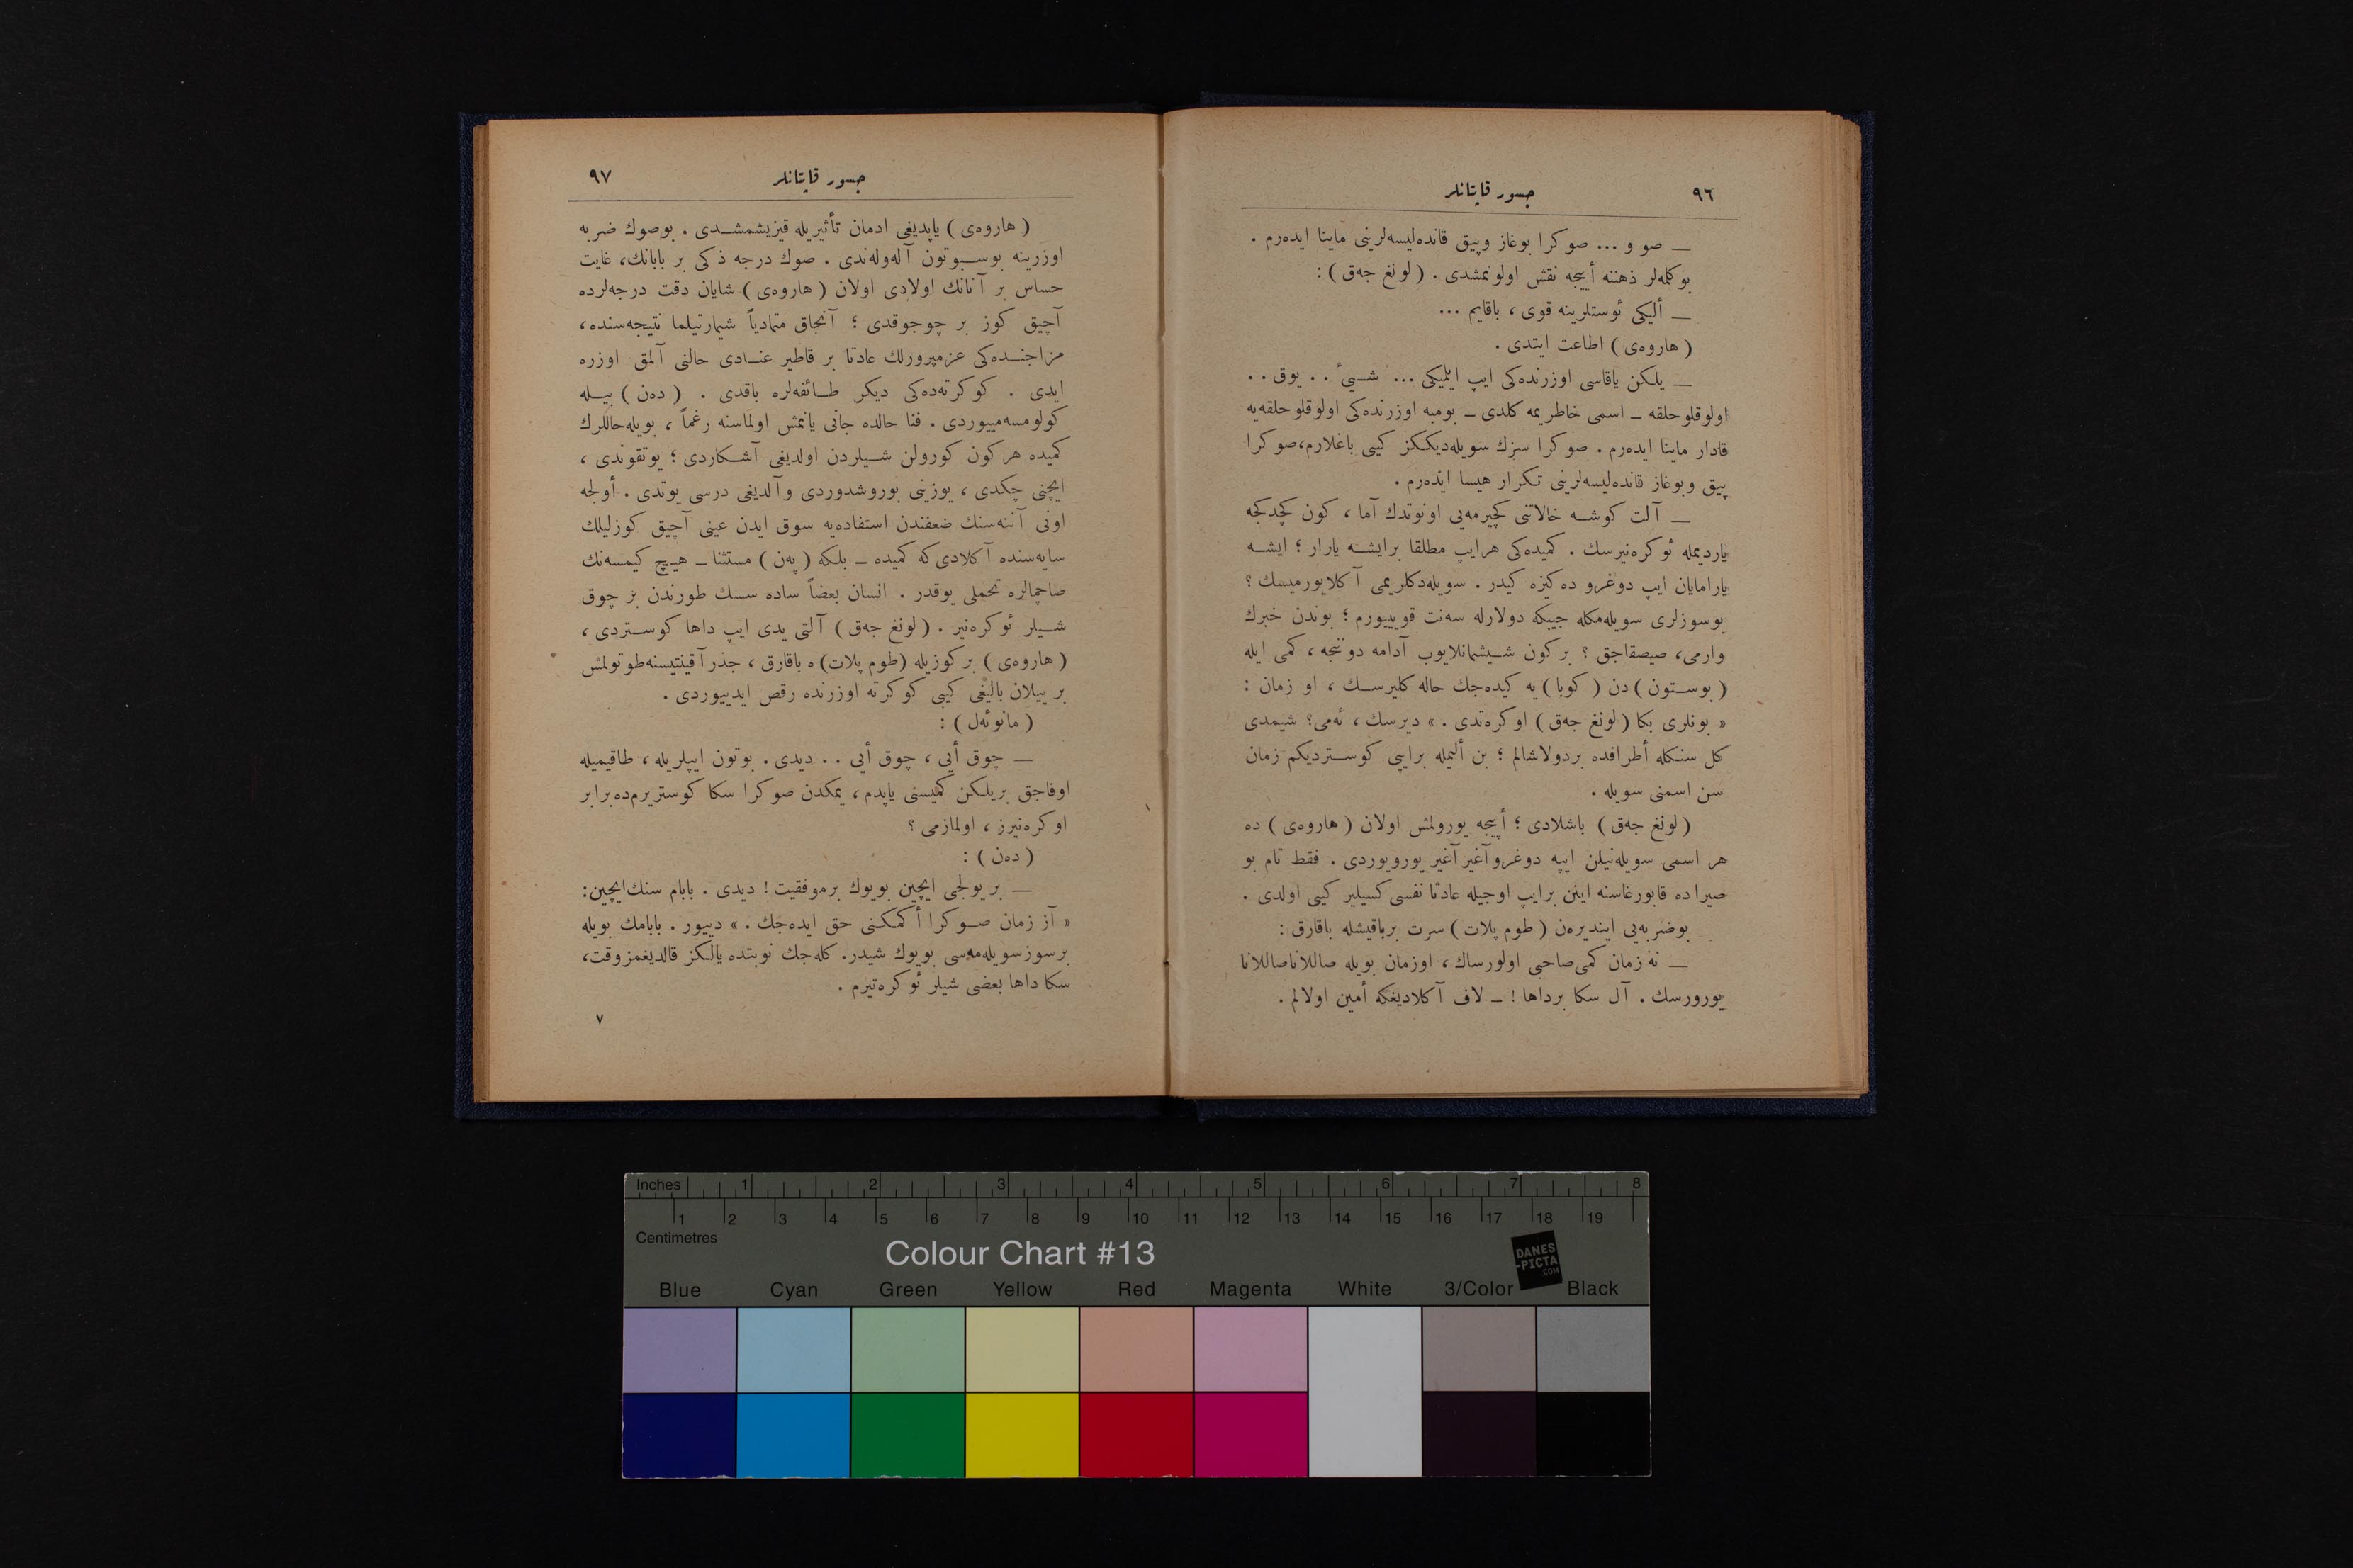 ٩٦
جسور قاپتانلر
ـــ صو و ... صوكرا بوغاز وپيق قاندهليسهلرينى ماينا ايدهرم .
بوكلمهلر ذهننه أييجه نقش اولونمشدى . ( لونغ جهق ) :
ـــ أليكى ئوستلرينه قوى ، باقايم ...
( هاروهى ) اطاعت ايتدى .
ـــ يلكن ياقاسى اوزرندهكى ايپ ايليكى ... شــيئ . . يوق . .
اولوقلو حلقه ـ اسمى خاطريمه كلدى ـ بومبه اوزرندهكى اولوقلو حلقهيه
قادار ماينا ايدهرم . صوكرا سزك سويلهديككز كيى باغلارم، صوكرا
پيق وبوغاز قاندهليسهلرينى تكرار هيسا ايدهرم .
ـــ آلت كوشــه خالاتنى كچيرمهيى اونوتدك آما ، كون كچدكجه
يارديمله ئوكرهنيرسك . كميدهكى هرايپ مطلقا برايشــه يارار ؛ ايشــه
يارامايان ايپ دوغرو دهكيزه كيدر . سويلهدكلريمى آكلايورميسك ؟
بوسوزلرى سويلهمكله جيبكه دولارله سهنت قوييورم ؛ بوندن خبرك
وارمى، صيصقاجق ؟ بركون شــيشمانلايوب آدامه دوننجه ، كمى ايله
( بوســتون ) دن ( كوبا ) يه كيدهجك حاله كليرســك ، او زمان :
« بونلرى بكا ( لونغ جهق ) اوكرهتدى . » ديرسك ، ئهمى؟ شيمدى
كل سنكله أطرافده بردولاشالم ؛ بن أليمله برايپى كوســترديكم زمان
سن اسمنى سويله .
( لونغ جهق ) باشلادى ؛ أييجه يورولمش اولان ( هاروهى ) ده
هر اسمى سويلهنيلن ايپه دوغرو آغير آغير يورويوردى . فقط تام بو
صيراده قابورغاسنه اينن برايپ اوجيله عادتا نفسى كسيلير كيى اولدى .
بوضربهيى اينديرهن ( طوم پلات ) سرت برباقيشله باقارق :
ـــ نه زمان كمى صاحبى اولورساك ، اوزمان بويله صاللانا صاللانا
يورورسك . آل سكا برداها ! ـ لاف آكلاديغكه أمين اولالم .
جسور قاپتانلر
٩٧
( هاروهى ) ياپديغى ادمان تأثيريله قيزيشمشــدى . بوصوك ضربه
اوزرينه بوســبوتون آلهولهندى . صوك درجه ذكى بر بابانك، غايت
حساس بر آنانك اولادى اولان ( هاروهى ) شايان دقت درجهلرده
آچيق كوز بر چوجوقدى ؛ آنجاق متمادياً شيمارتيلما نتيجهسنده،
مزاجنــدهكى عزمپرورلك عادتا بر قاطير عنــادى حالنى آلمق اوزره
ايدى . كوكرتهدهكى ديكر طــائفهلره باقدى . ( دهن ) بيــله
كولومسهمييوردى . فنا حالده جانى يانمش اولماسنه رغماً ، بويله حاللرك
كميده هركون كورولن شــيلردن اولديغى آشــكاردى ؛ يوتقوندى ،
ايچنى چكدى ، يوزينى بوروشدوردى وآلديغى درسى يوتدى . أولجه
اونى آننهسنك ضعفندن استفادهيه سوق ايدن عينى آچيق كوزليلك
سايهسنده آكلادى كه كميده ـ بلكه ( پهن ) مستثنا ـ هيـچ كيمسهنك
صاچمالره تحملى يوقدر . انسان بعضاً ساده سسك طورندن بر چوق
شــيلر ئوكرهنير . ( لونغ جهق ) آلتى يدى ايپ داها كوســتردى ،
( هاروهى ) بر كوزيله ( طوم پلات ) ه باقارق ، جذر آقينتيسنه طوتولمش
بر ييلان باليغى كيى كوكرته اوزرنده رقص ايدييوردى .
( مانوئهل ) :
ـــ چوق أيى ، چوق أيى . . ديدى . بوتون ايپلريله ، طاقيميله
اوفاجق بريلكن كميسنى ياپدم ، يمكدن صوكرا سكا كوستريرم ده برابر
اوكرهنيرز ، اولمازمى ؟
( دهن ) :
ـــ بر يولجى ايچين بويوك برموفقيت ! ديدى . بابام سنك ايچين:
« آز زمان صــوكرا أكمكنى حق ايدهجك . » دييور . بابامك بويله
برسوزسويلهمهسى بويوك شيدر. كلهجك نوبتده يالكز قالديغمز وقت،
سكا داها بعضى شيلر ئوكرهتيرم .
٧
Inches 1 2 3 4 5 6 7 8
1 2 3 4 5 6 7 8 9 10 11 12 13 14 15 16 17 18 19
Centimetres
Colour Chart #13
DANES
-PICTA
.COM
Blue Cyan Green Yellow Red Magenta White 3/Color Black